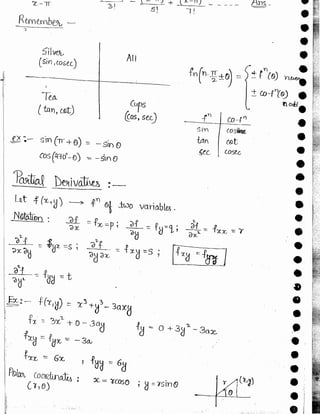 Remember
Silver
(sin, cosec)
All
Tea
(tan, cot)
Cups
(cos, sec)
fn(n·π/2 ± θ) = { ± fⁿ(θ) n even
± co-fⁿ(θ) n odd
fⁿ | co-fⁿ
sin cosine
tan cot
sec cosec
ex:- sin(π+θ) = -sinθ
cos(270°-θ) = -sinθ
Partial Derivatives :-
Let f(x,y) → fⁿ of two variables.
Notation : ∂f/∂x = fx = p ; ∂f/∂y = fy = q ; ∂²f/∂x² = fxx = r
∂²f/∂x∂y = fyx = s ; ∂²f/∂y∂x = fxy = s ; fxy = fyx
∂²f/∂y² = fyy = t
Ex:- f(x,y) = x³ + y³ - 3axy
fx = 3x² + 0 - 3ay fy = 0 + 3y² - 3ax
fxy = fyx = -3a
fxx = 6x , fyy = 6y
Polar coordinates : x = rcosθ ; y = rsinθ
(r,θ)
r (x,y)
θ